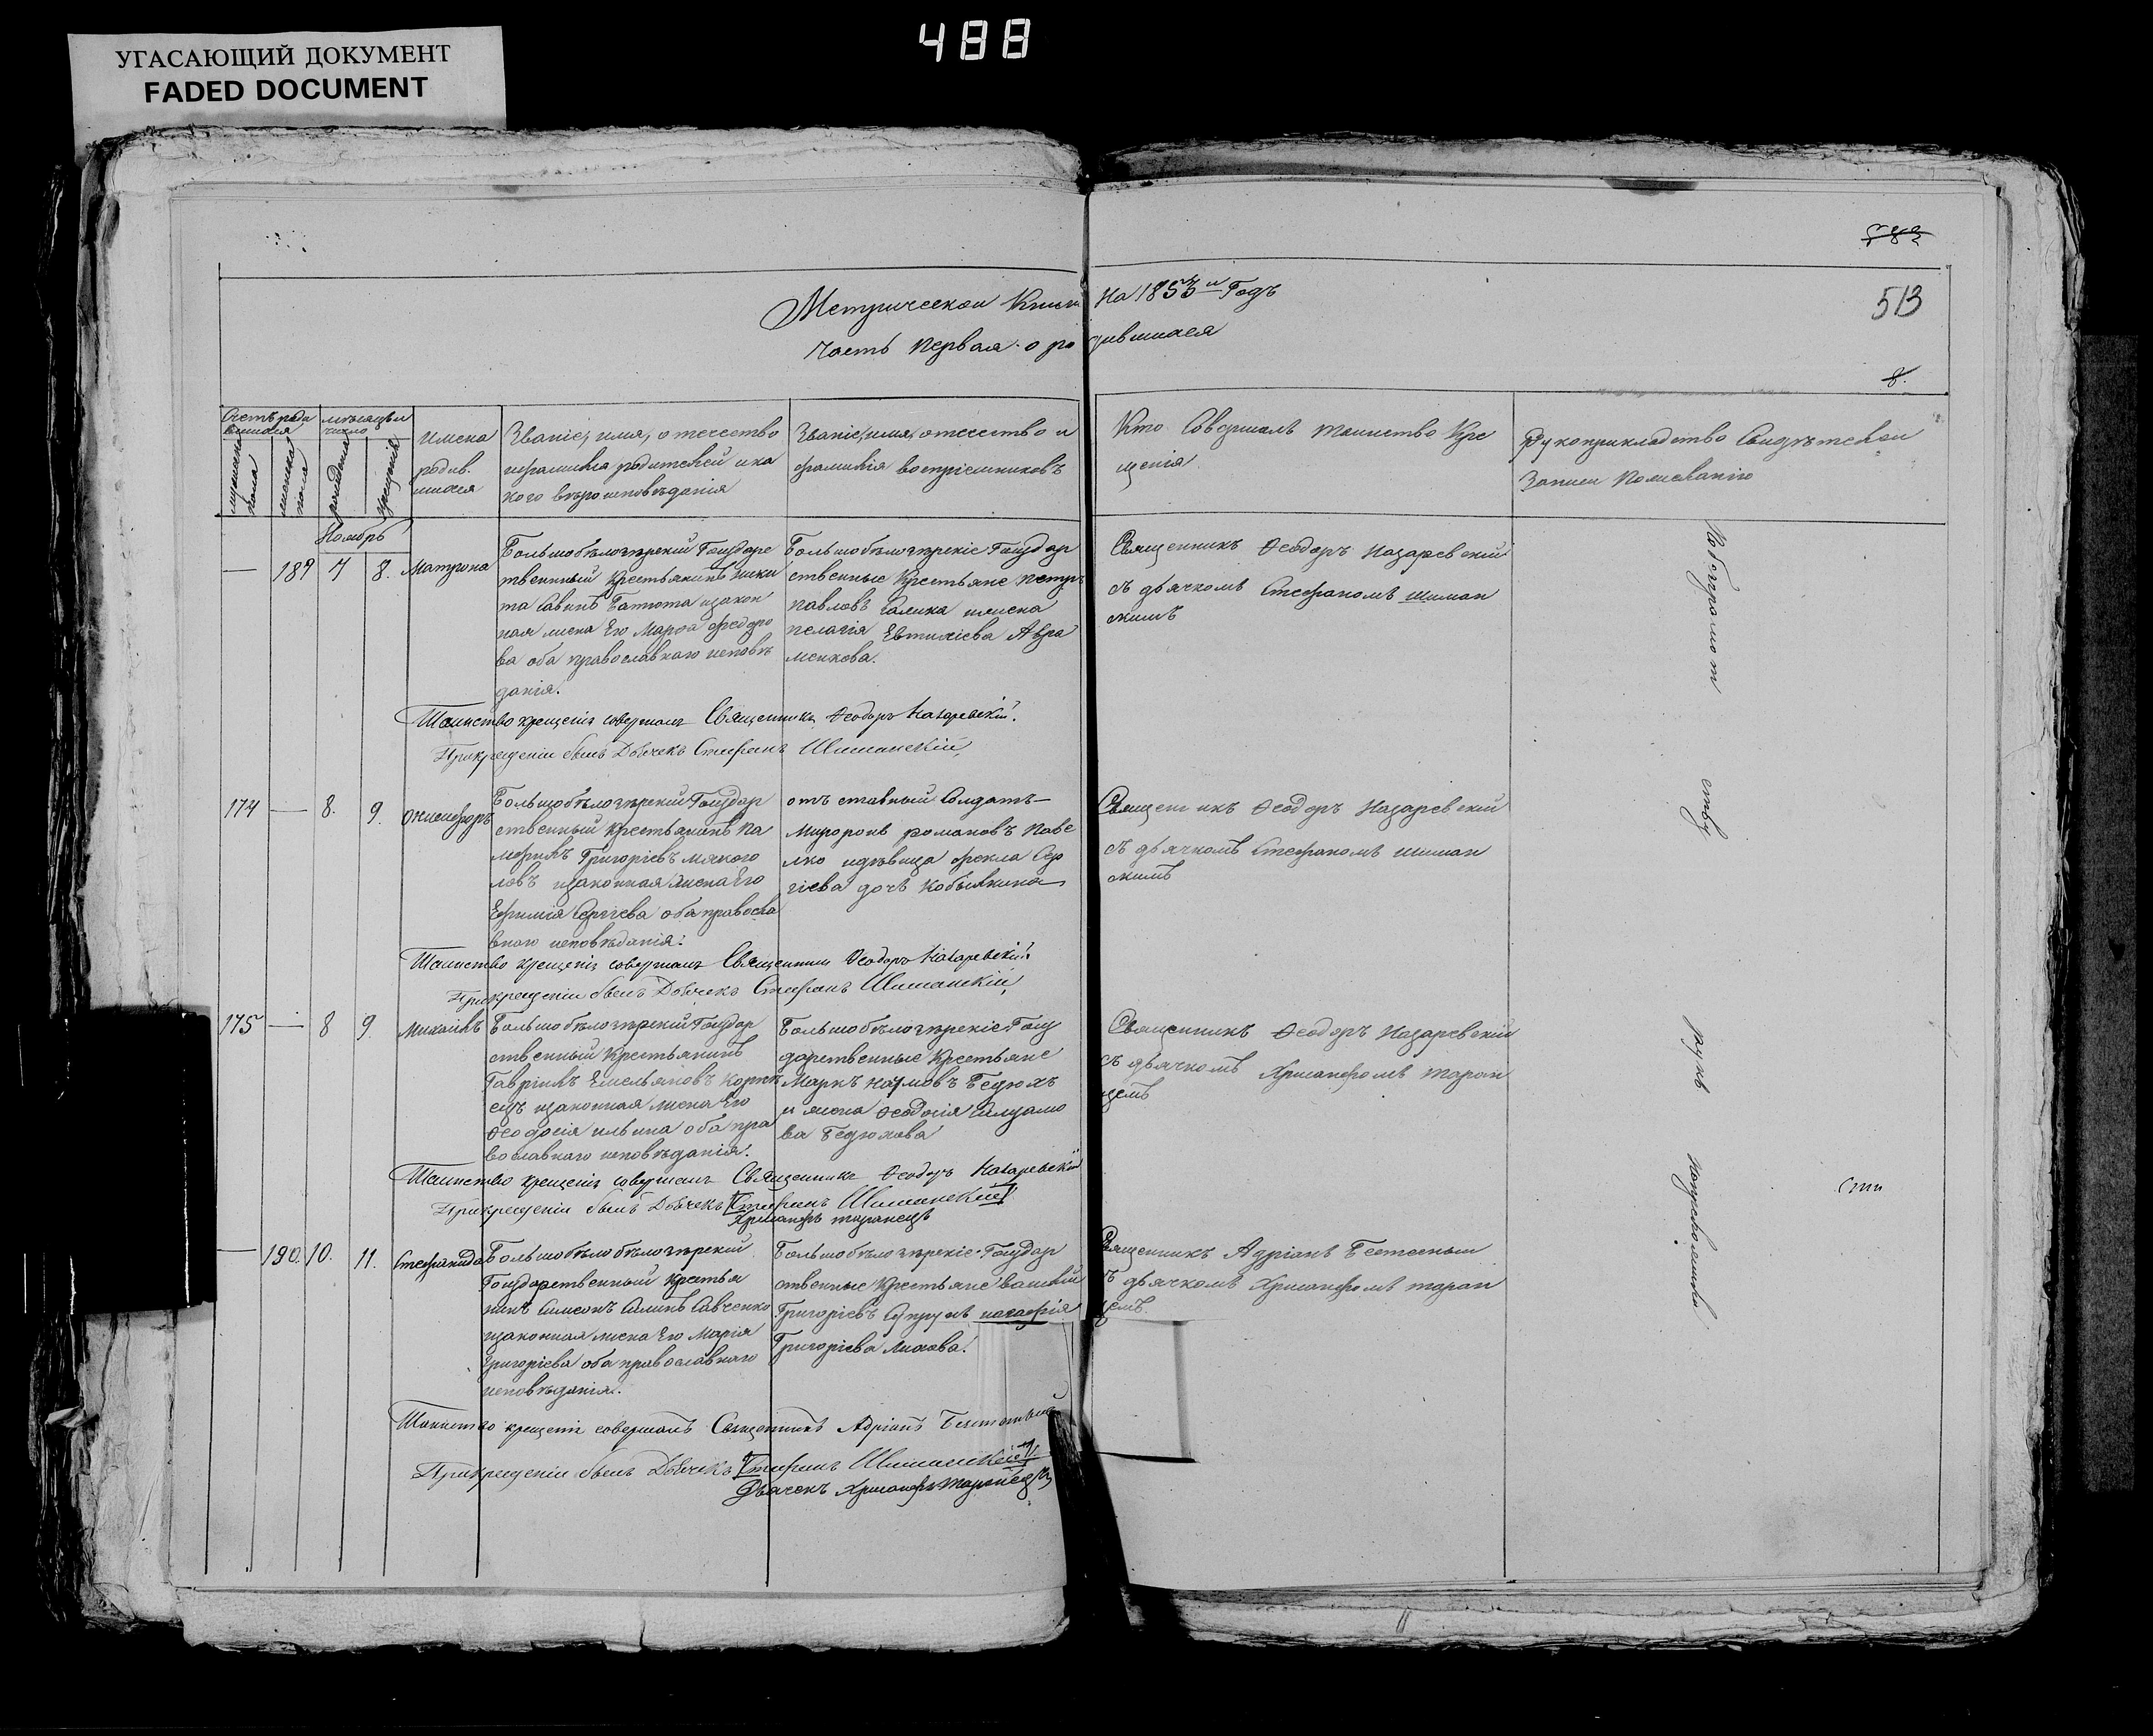 488
УГАСАЮЩИЙ ДОКУМЕНТ
FADED DOCUMENT
583
513
8.
Метрической Книги На 1853 й Годъ
Часть Первая о родившихся
Счетъ роди
вшихся
мужеска
пола
женска
пола
мѣсяцъ и
число
рожденія
крещенія
Имена
родив.
шихся
Званіе, имя, отечество
и фамилія родителей и ка
кого вѣроисповѣданія
Званіе, имя, отечество и
фамилія воспріемниковъ
Кто Совершалъ таинство Кре
щенія
Рукоприкладство Свидѣтелей
Записи По желанію
Ноябрь
— 189 7 8. Матрона
Большобѣлозѣрскій Государ
ственный Крестьянинъ Ники
та Савинъ и закон
ная жена Его Марѳа Федоро
ва оба православнаго исповѣ
данія.
Большобѣлозѣрскіе Государ
ственные Крестьяне Петръ
Павловъ Галика и жена
Пелагія Евтихіева Авра
менкова.
Священникъ Ѳеодоръ Назаревскій
съ дьячкомъ Стефаномъ Шиман
скимъ
Таинство крещенія совершалъ Священникъ Ѳеодоръ Назаревскій.
При крещеніи былъ Дьячекъ Стефанъ Шиманскій
174 — 8. 9. Онисифоръ
Большобѣлозѣрскій Государ
ственный Крестьянинъ Па
мфилъ Григоріевъ
и законная жена Его
Ефимія Сергіева оба правосла
внаго исповѣданія.
отъ ставный Солдатъ
романовъ Паве
лко и дѣвица Фекла Сер
гіева дочь Кобылкина
Священникъ Ѳеодоръ Назаревскій
съ дьячкомъ Стефаномъ Шиман
скимъ
Таинство крещенія совершалъ Священникъ Ѳеодоръ Назаревскій
При крещеніи былъ Дьячекъ Стефанъ Шиманскій
175 — 8 9. Михаилъ
Большобѣлозѣрскій Государ
ственный Крестьянинъ
Гавріилъ Емельяновъ
и законная жена Его
Ѳеодосія Ильина оба пра
вославнаго исповѣданія.
Большобѣлозѣрскіе Госу
дарственные Крестьяне
Маркъ Наумовъ Бедюхъ
и жена Ѳеодосія
ва Бедюхова
Священникъ Ѳеодоръ Назаревскій
съ дьячкомъ Хрисанфомъ Таран
цемъ
Таинство крещенія совершалъ Священникъ Ѳеодоръ Назаревскій
При крещеніи былъ Дьячекъ Стефанъ Шиманскій
Хрисанфъ Таранецъ
— 190. 10. 11. Стефанида
Большобѣлобѣлозѣрскій
Государственный Крестья
нинъ Симеонъ Савченко
и законная жена Его Марія
Григоріева оба православнаго
исповѣданія.
Большобѣлозѣрскіе Государ
ственные Крестьяне Василій
Григоріевъ Супрунъ и
Григоріева
Священникъ Адріанъ
съ дьячкомъ Хрисанфомъ Таран
цемъ.
Таинство крещенія совершалъ Священникъ Адріанъ
При крещеніи былъ Дьячекъ Стефанъ Шиманскій
Дьячекъ Хрисанфъ Таранецъ